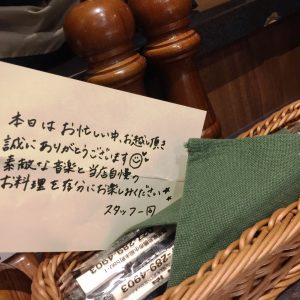 本日は お忙しい中、お越し頂き
誠にありがとうございます
素敵な音楽と当店自慢の
お料理を存分にお楽しみください
スタッフ一同
289
4903
289-4903